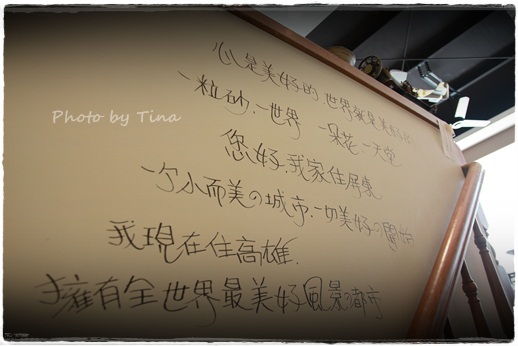 心是美好的.世界就是美好的
一粒砂.一世界 一朵花.一天堂
Photo by Tina
您好.我家住屏東
一个小而美の城市.一切美好の開始
我現在住高雄.
擁有全世界最美好風景の都市